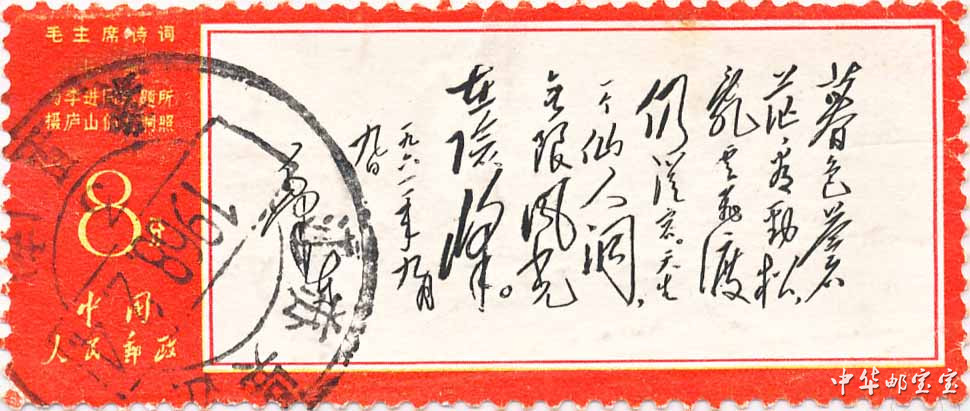 毛主席诗词
为李进同志题所
摄庐山仙人洞照
8分
中国
人民郵政
暮色苍
茫看劲松,
乱云飞渡
仍从容。天生
一个仙人洞,
无限风光
在险峰。
一九六一年九月
九日
中华邮宝宝